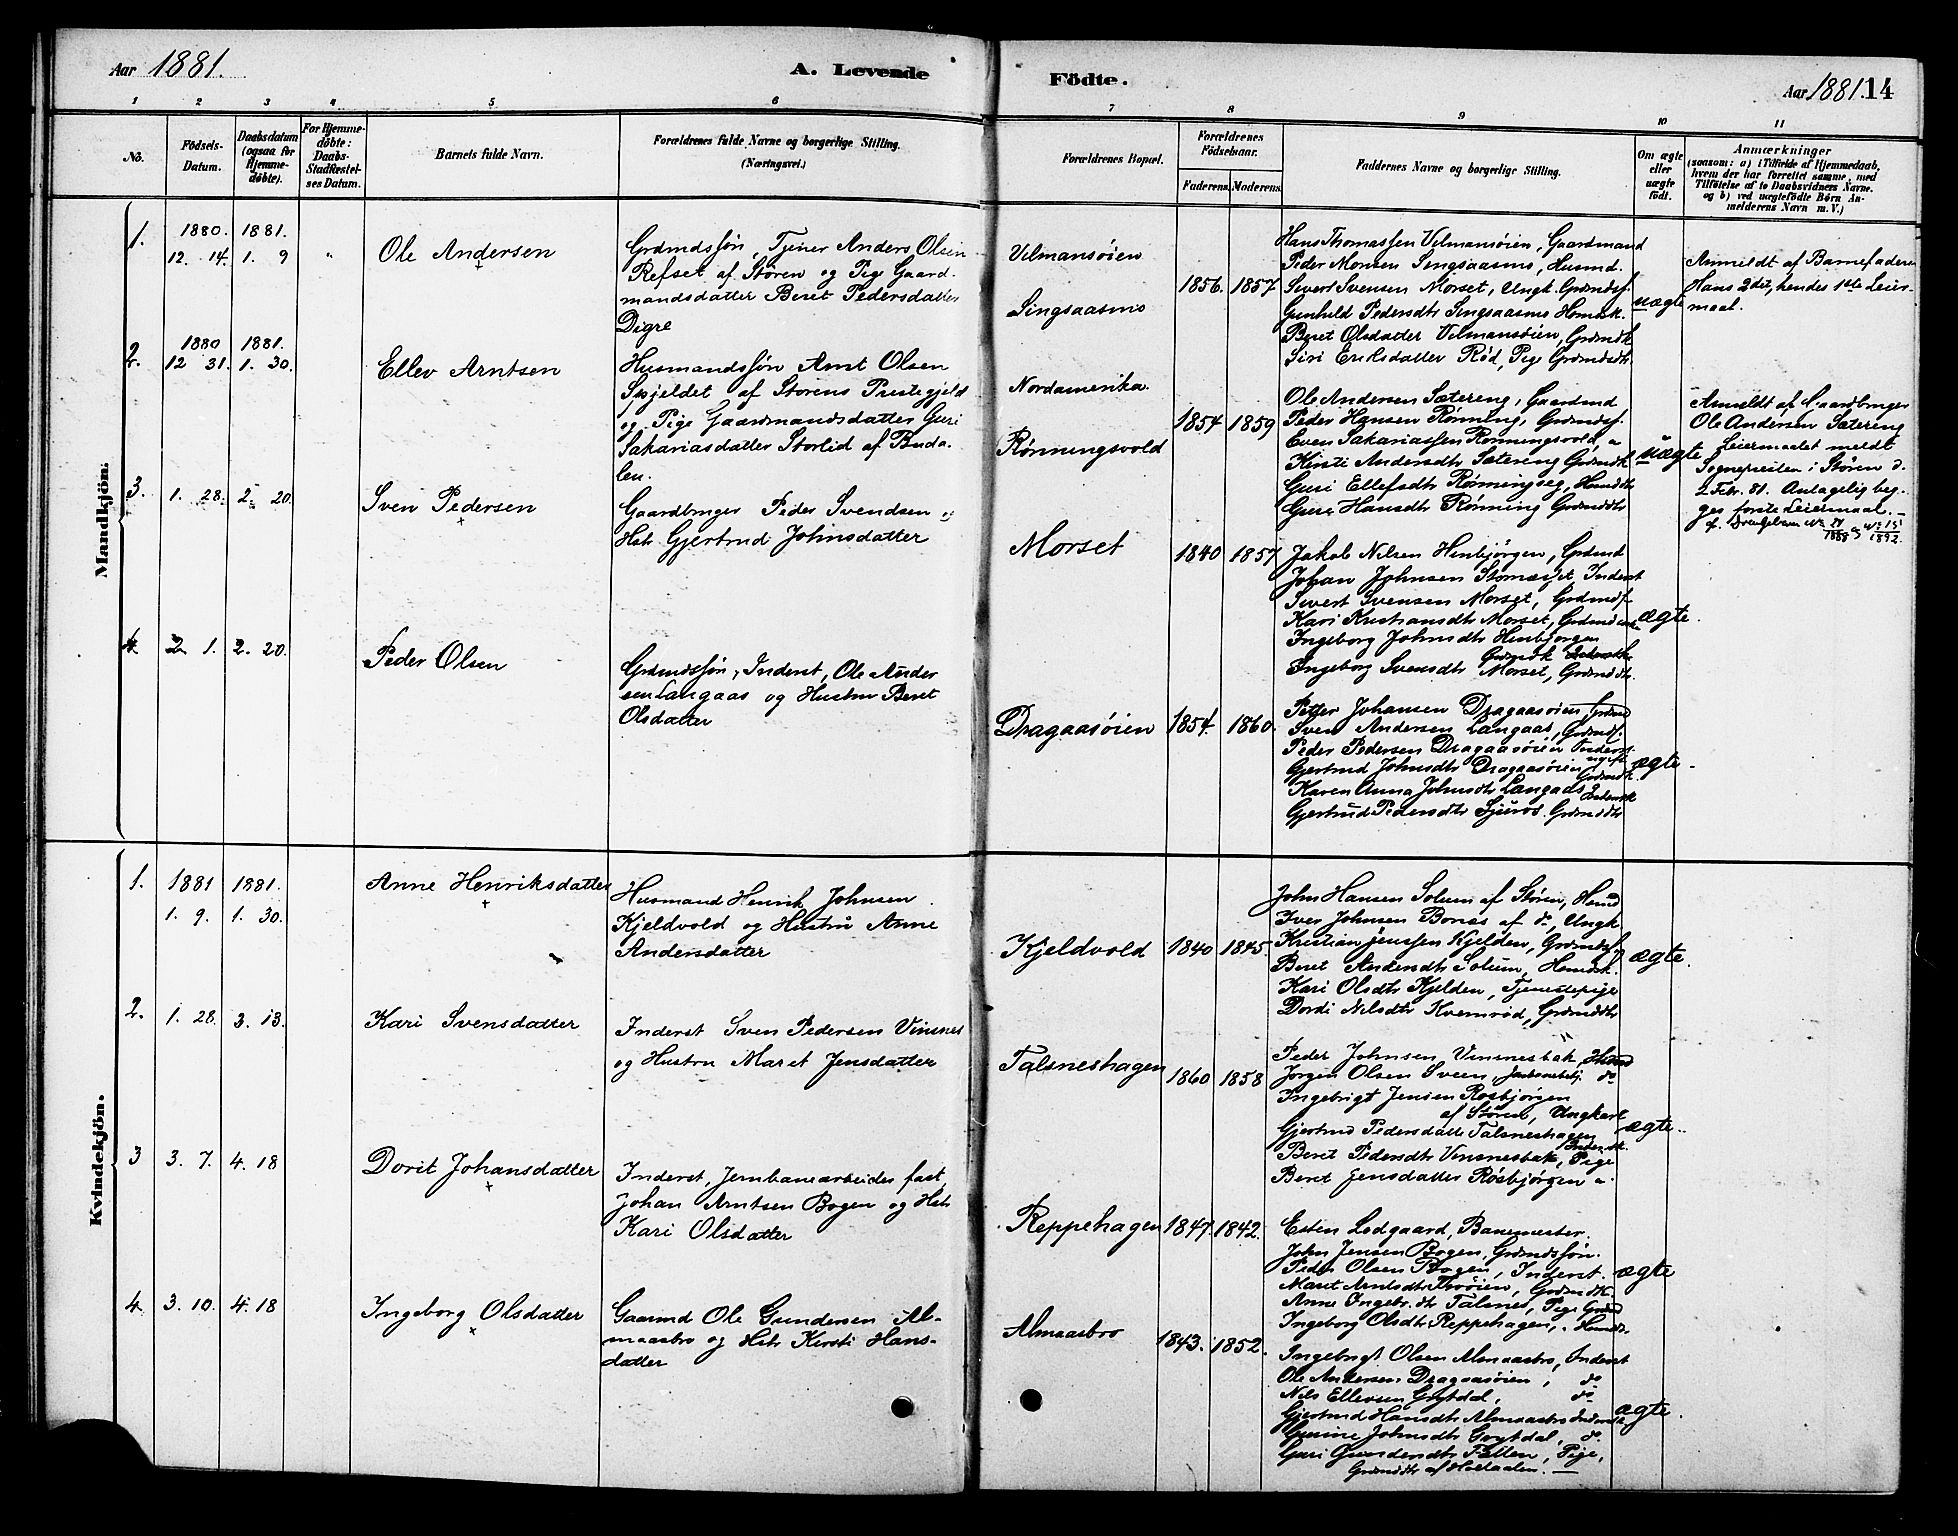 Aar 1881.
A. Levende
Födte.
Aar 1881. 14
1 2 3 4 5 6 7 8 9 10 11
No.
Födsels-
Datum.
Daabsdatum
(ogsaa for
Hjemme-
döbte).
For Hjemme-
döbte:
Daabs-
Stadfæstel-
ses Datum.
Barnets fulde Navn.
Forældrenes fulde Navne og borgerlige Stilling.
(Næringsvei.)
Forældrenes Bopæl.
Forældrenes
Födselsaar.
Faderens. Moderens.
Faddernes Navne og borgerlige Stilling.
Om ægte
eller
uægte
födt.
Anmærkninger
(saasom: a) i Tilfælde af Hjemmedaab,
hvem der har forrettet samme, med
Tilföielse af to Daabsvidners Navne.
og b) ved uægtefödte Börn An-
melderens Navn m.V.)
Mandkjön.
1.
1880. 1881.
12. 14. 1. 9
"
Ole Andersen
Grdmdssøn, Tjener Anders Olsen
Refset af Støren og Pige Gaard-
mandsdatter Beret Pedersdatter
Digre
Vilmansøien
Singsaasmo
1856. 1857
Hans Thomassen Vilmansøien, Gaardmand
Peder Monsen Singsaasmo, Husmd.
Sivert Svensen Morset, Ungk. Grdmdsf.
Gunhild Pedersdtr Singsaasmo Hsmdsk.
Beret Olsdatter Vilmansøien, Grdmdk
Siri Eriksdatter Rød, Pige Grdmdsdtr
uægte
Anmeldt af Barnefaderen
Hans 2det, hendes 1ste Leier-
maal.
2.
1880 1881.
12 31. 1. 30.
Ellev Arntsen
Husmandssøn Arnt Olsen
Skjeldet af Størens Prestegjeld
og Pige Gaardmandsdatter Guri
Sakariasdatter Storlid af Buda-
len.
Nordamerika.
Rønningsvold
1854 1859
Ole Andersen Sætereng, Gaardmd
Peder Hansen Rønning, Grdmdsf.
Even Sakariassen Rønningsvold, "
Kirsti Andersdtr Sætereng Grdmdk
Guri Ellefsdtr Rønningseg, Hsmdtr
Guri Hansdtr Rønning Grdmdtr
uægte
Anmeldt af Gaardbruger
Ole Andersen Sætering
Leiermaalet meldt
Sognepresten i Støren d.
2 Febr. 81. Antagelig beg-
ges første Leiermaal. —
3.
1. 28. 2. 20.
Sven Pedersen
Gaardbruger Peder Svendsen og
Hstr Gjertrud Johnsdatter
Morset
1840 1857
Jakob Nilsen Henbjørgen, Grdmd
Johan Johnsen Inderst
Sivert Svensen Morset, Grdmdsf
Kari Kristiansdtr Morset, Grdmd
Ingeborg Johnsdtr Henbjørgen
Grdmdk
Ingeborg Svensdtr Morset, Grdmdtr.
ægte.
4.
2. 1. 2. 20.
Peder Olsen
Grdmdssøn, Inderst, Ole Ander
sen Langaas og Hustru Beret
Olsdatter
Dragaasøien
1854. 1860.
Petter Johansen Dragaasøien Grdmd
Sven Andersen Langaas, Grdmdsf.
Peder Pedersen Dragaasøien Inderst
ugift
Gjertrud Johnsdtr Dragaasøien
Grdmdk.
Karen Anna Johnsdtr Langaas
Inderstk
Gjertrud Pedersdtr Sjuros. Grdmdtr
ægte.
Kvindekjön.
1.
1881 1881.
1. 9. 1. 30.
Anne Henriksdatter
Husmand Henrik Johnsen
Kjeldvold og Hustru Anne
Andersdatter
Kjeldvold
1840 1845.
John Hansen Solem af Støren, Hsmd
Iver Johnsen Bonæs af do, Ungk
Kristian Jenssen Kjelden, Grdmdsf.
Beret Andersdtr Solem, Hsmdsk.
Kari Olsdtr Kjelden, Tjenestepige
Dordi Nilsdtr Kvernrød, Grdmdtr
ægte.
2.
1. 28. 3. 13.
Kari Svensdatter
Inderst Sven Pedersen Vinsnes
og Hustru Maret Jensdatter
Talsneshagen
1860 1858
Peder Johnsen Vinsnesbak, Hsmd
Jørgen Olsen Sveen, do
Ingebrigt Jensen Rosbjørgen
af Støren, Ungkarl
Gjertrud Pedersdatter Talsneshagen
Inderstk.
Beret Pedersdtr Vinsnesbak, Pige
Beret Jensdatter Røsbjørgen "
ægte.
3
3. 7. 4. 18
Dorit Johansdatter
Inderst, Jernbanearbeider fast,
Johan Arntsen Bogen og Hstr
Kari Olsdatter
Reppehagen
1847. 1842.
Esten Ledgaard, Banemester.
John Jensen Bogen, Grdmdssøn.
Peder Olsen Bogen, Inderst.
Maret Arntsdtr Thrøien, Grdmdk.
Anne Ingebr.dtr Talsnes, Pige Grdmd
Ingeborg Olsdtr Reppehagen, Hsmdtr.
ægte
4.
3. 10. 4. 18
Ingeborg Olsdatter
Gaarmd Ole Gundersen Al-
maasbro og Hstr Kirsti Hans-
datter
Almaasbro
1843. 1852.
Ingebrigt Olsen Almaasbro, Inderst
Ole Andersen Dragaasøien, do
Nils Ellevsen Grytdal, do
Gjertrud Hansdtr Almaasbro Inderstk
Gurine Johnsdtr Grytdal, do.
Guri Gundersdtr Fallen, Pige,
Grdmdtr af Holtaalen. —
ægte.